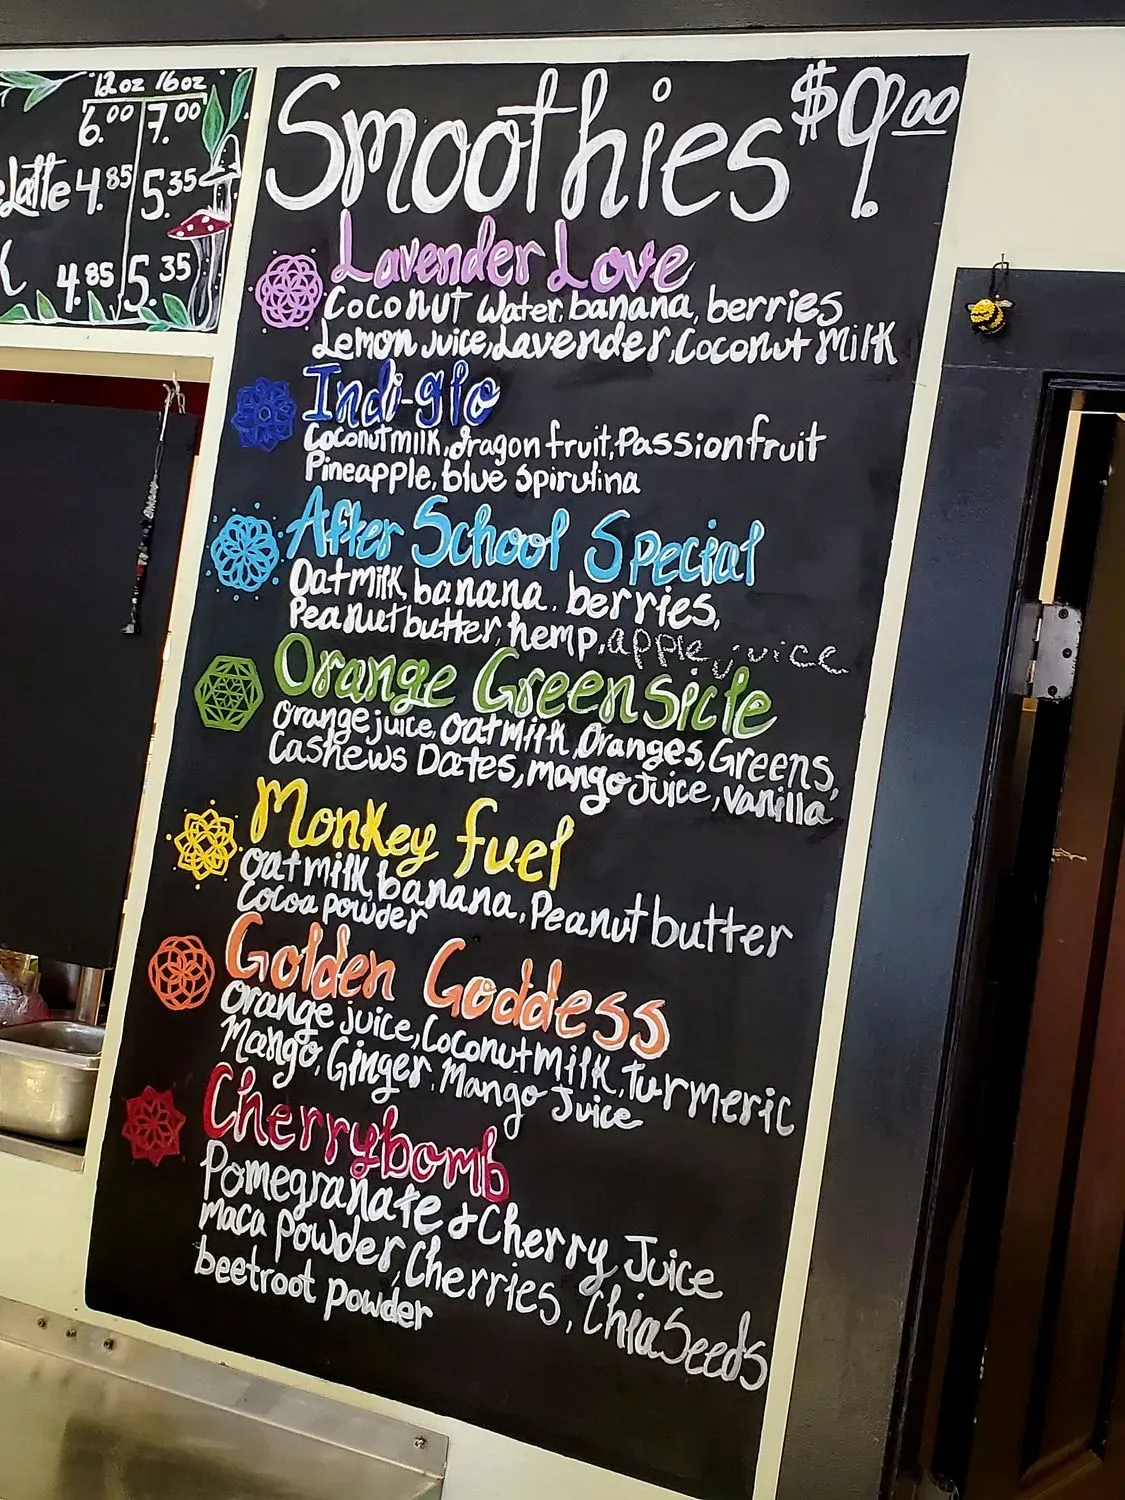 12oz 16oz
6.00 7.00
Latte 4.85 5.35
4.85 5.35
Smoothies $9.00
Lavender Love
Coconut Water, banana, berries
Lemon Juice, Lavender, Coconut Milk
Indi-glo
Coconut milk, dragon fruit, Passionfruit
Pineapple, blue Spirulina
After School Special
Oatmilk, banana, berries,
Peanut butter, hemp, apple juice
Orange Greensicle
Orange juice, Oatmilk, Oranges, Greens,
Cashews Dates, mango Juice, vanilla
Monkey fuel
Oatmilk, banana, Peanut butter
Cocoa powder
Golden Goddess
Orange juice, Coconut milk, turmeric
Mango, Ginger, Mango Juice
Cherrybomb
Pomegranate & Cherry Juice
maca powder, Cherries, Chia Seeds
beetroot powder